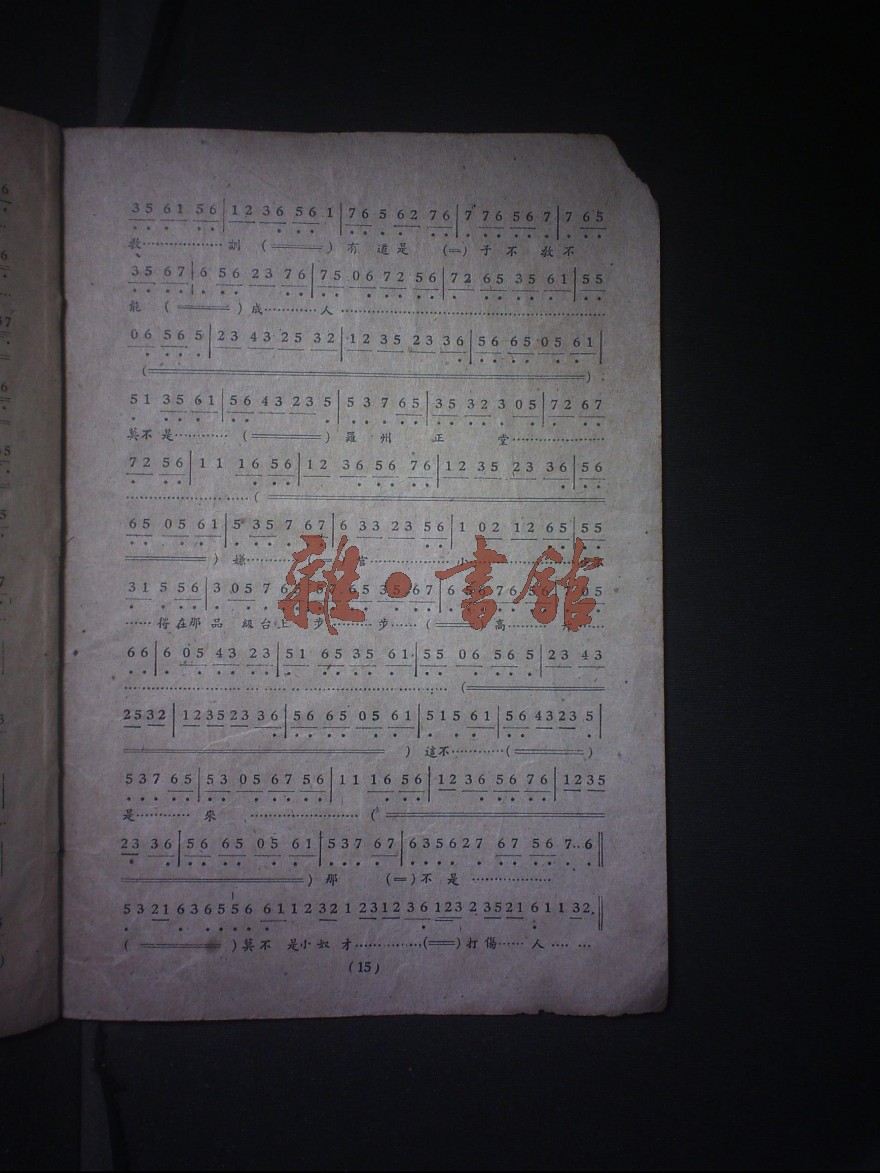 35 61 56|12 36 561|76 562 76|7 76 567|7 65
教………………訓 (═══) 有 道 是 (═) 子 不 教 不
35 67|6 56 23 76|75 06 72 56|72 65 35 61|55
能 (═══) 成…………人………………………………
06 565|23 43 25 32|12 35 23 36|56 65 05 61|
(═══════════════)
51 35 61|56 43 235|537 65|35 323 05|72 67
莫不 是………… (═══) 羅 州 正 堂…………………
72 56|11 16 56|12 36 56 76|12 35 23 36|56
…………………………(═══════════
65 05 61|5 35 7 67|6 33 23 56|1 02 12 65|55
══════) 嫌
31 5 56|3 05 7
……得 在 那 品 級 台 上 步………步……( 高
66|6 05 43 23|51 65 35 61|55 06 565|23 43
………………………………………………(═══════
2532|1235 23 36|56 65 05 61|515 61|56 4323 5|
══════════════) 這不…………(═══)
537 65|53 05 67 56|11 16 56|12 36 56 76|1235
是………… 來 ………………………(═══════════
23 36|56 65 05 61|537 67|635627 67 56 7..6‖
══════════) 那 (═)不 是 ………………
5321 636556 6112321 231236 1232 3521 61132.‖
(═════)莫不 是小奴 才……………(══)打傷…… 人…… …
雜·書舘
(15)